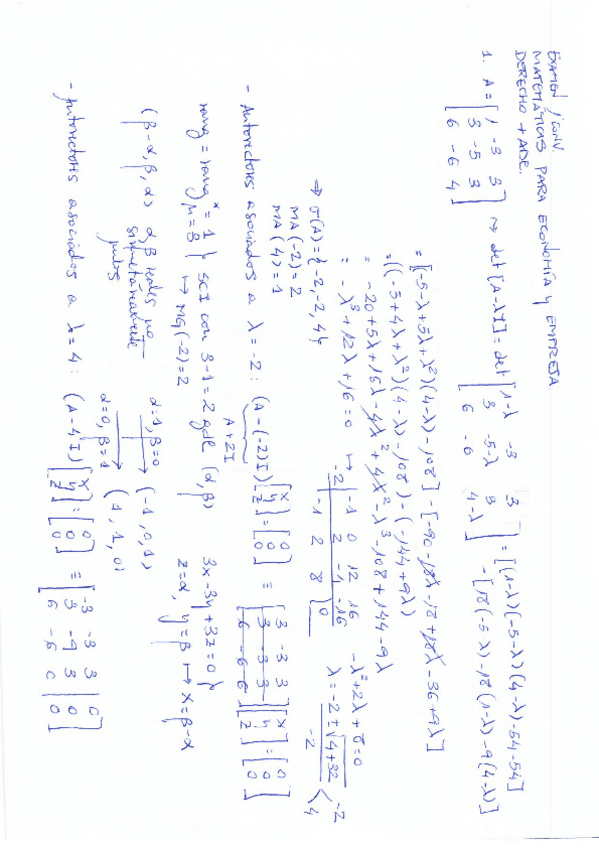 EXAMEN 1ª CONV.
MATEMÁTICAS PARA ECONOMÍA Y EMPRESA
DERECHO + ADE.
1. A = [1 -3 3; 3 -5 3; 6 -6 4] ⇝ det[A-λI] = det [1-λ -3 3; 3 -5-λ 3; 6 -6 4-λ] = [(1-λ)(-5-λ)(4-λ)-54-54]
- [18(-5-λ)-18(1-λ)-9(4-λ)]
= [(-5-λ+5λ+λ²)(4-λ)-108] - [-90-18λ-18+18λ-36+9λ]
= ((-5+4λ+λ²)(4-λ)-108) - (-144+9λ)
= -20+5λ+16λ-4λ²+4λ²-λ³-108+144-9λ
= -λ³+12λ+16=0 ↦
-1 0 12 16
-2 2 -4 -16
-1 2 8 0
-λ²+2λ+8=0
λ = -2±√4+32 / -2 < -2 4
⇒ σ(A)={-2,-2,4}
MA(-2)=2
MA(4)=1
- Autovectores asociados a λ=-2: (A-(-2)I) [x y z] = [0 0 0] ≡ [3 -3 3; 3 -3 3; 6 -6 6] [x y z] = [0 0 0]
A+2I
rang = rang* = 1 } SCI con 3-1=2 gdl (α,β) 3x-3y+3z=0}
n=3 ↦ MG(-2)=2 z=α, y=β ↦ x=β-α
(β-α, β, α) α,β reales no simultáneamente nulos
α=1, β=0 → (-1,0,1)
α=0, β=1 → (1,1,0)
- Autovectores asociados a λ=4: (A-4I) [x y z] = [0 0 0] ≡ [-3 -3 3 | 0; 3 -9 3 | 0; 6 -6 0 | 0]